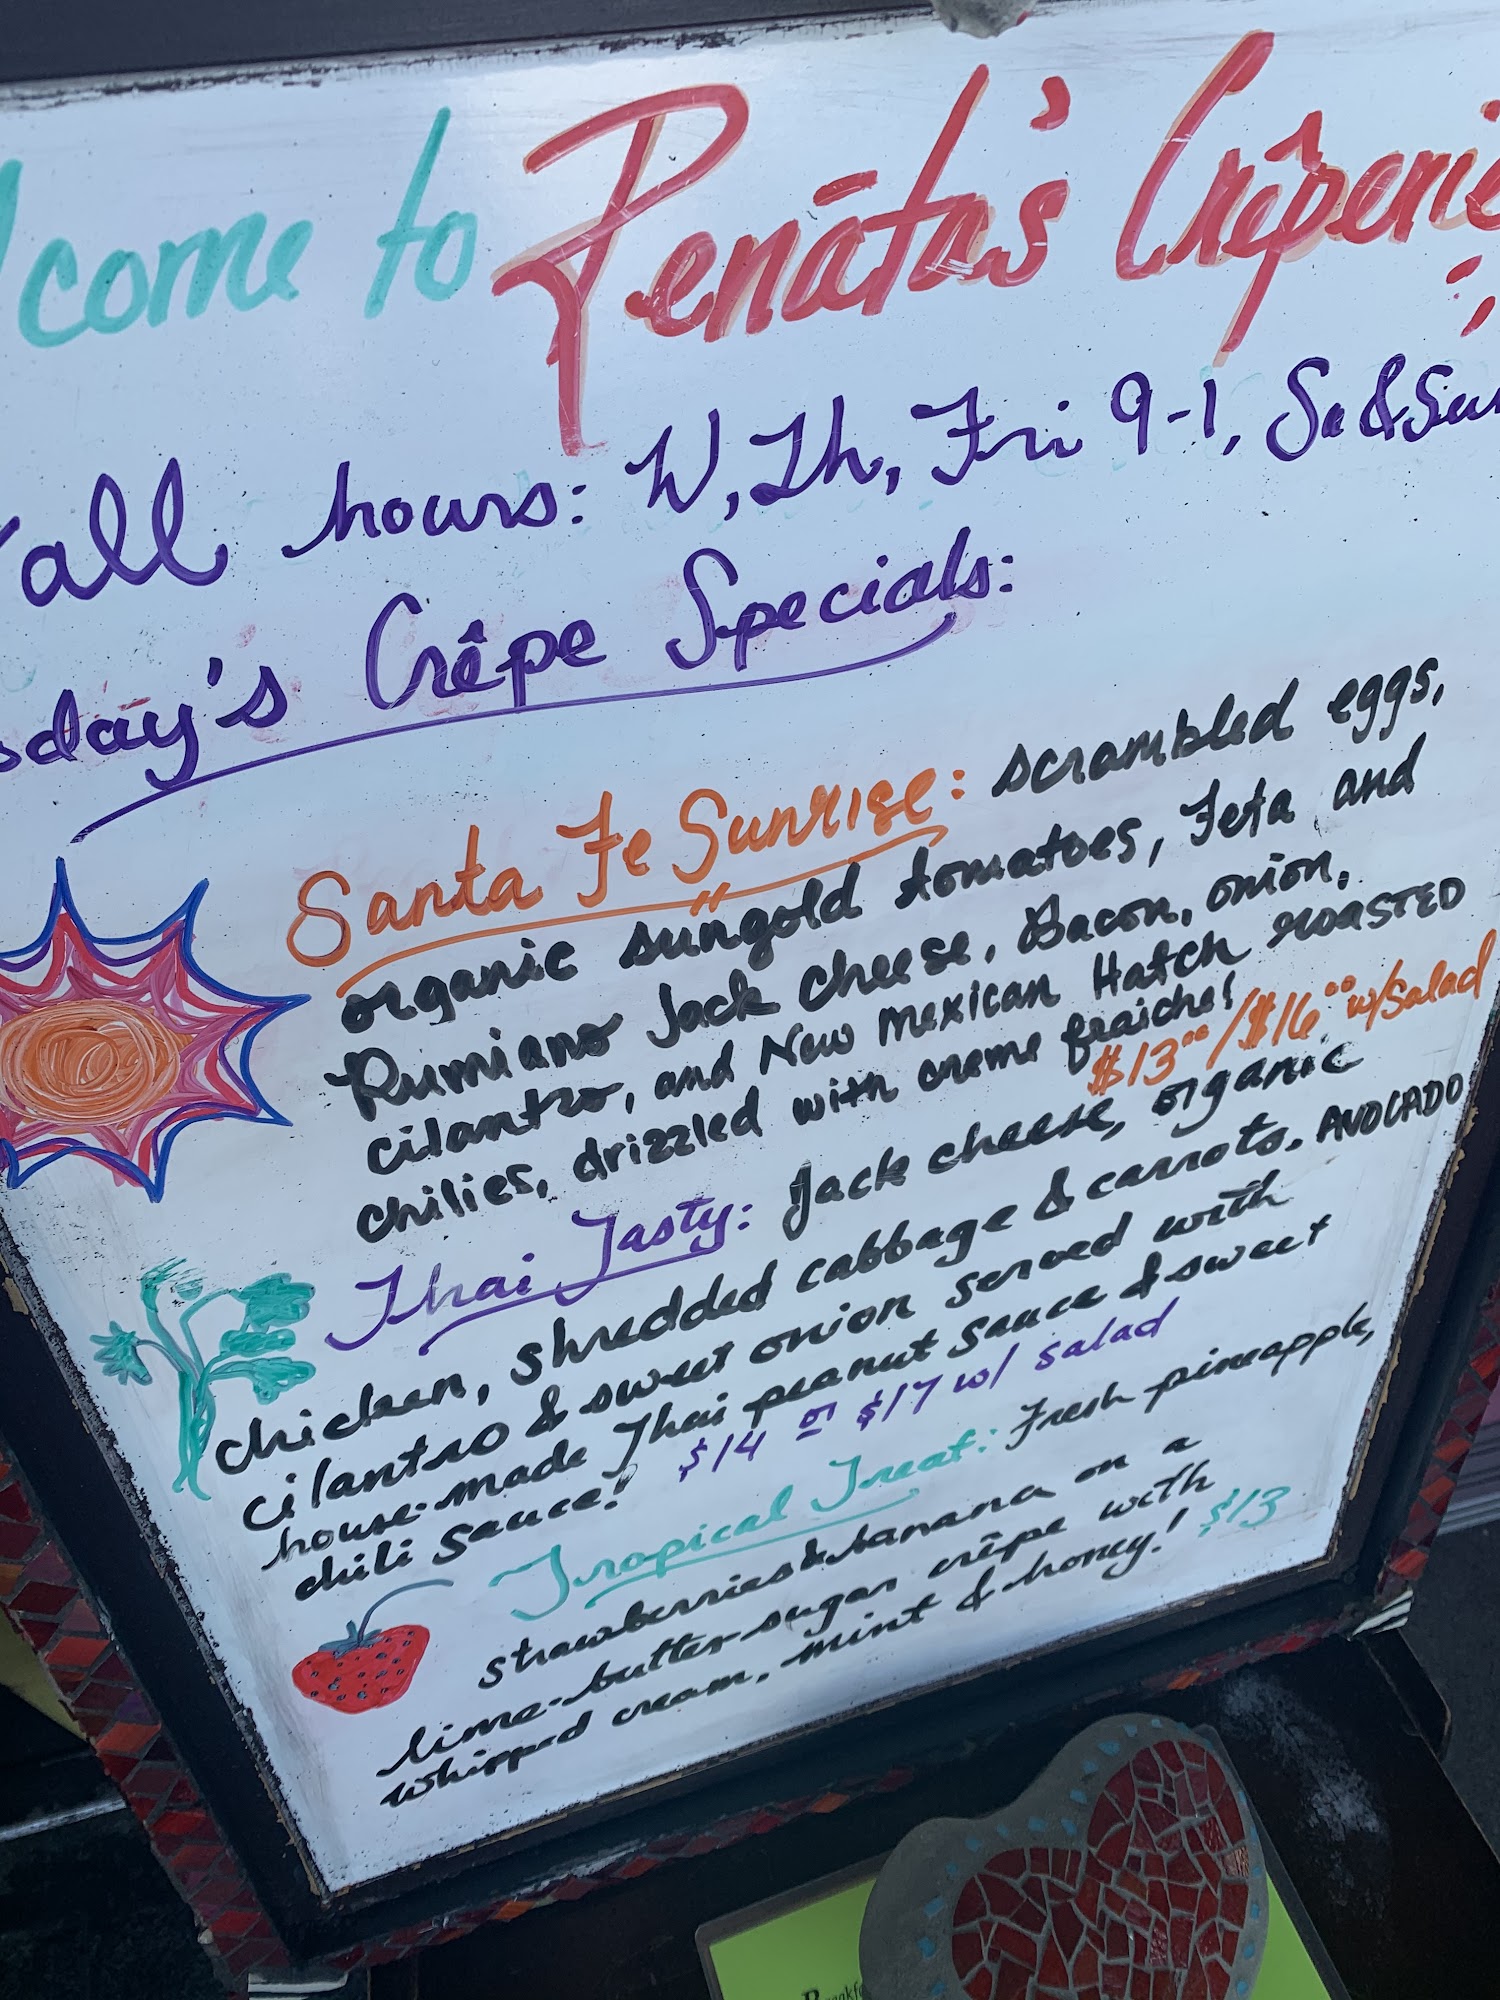 lcome to Renata's Crêperie
Fall hours: W, Th, Fri 9-1, Sa & Sun
sday's Crêpe Specials:
Santa Fe Sunrise: scrambled eggs,
organic sungold tomatoes, Feta and
Rumiano Jack cheese, Bacon, onion,
cilantro, and New Mexican Hatch ROASTED
chilies, drizzled with creme fraiche!
$13.00/$16.00 w/salad
Thai Tasty: Jack cheese, organic
chicken, shredded cabbage & carrots, AVOCADO
cilantro & sweet onion served with
house-made Thai peanut sauce & sweet
chili sauce! $14 or $17 w/ salad
Tropical Treat: Fresh pineapple,
strawberries & banana on a
lime-butter-sugar crêpe with
whipped cream, mint & honey! $13